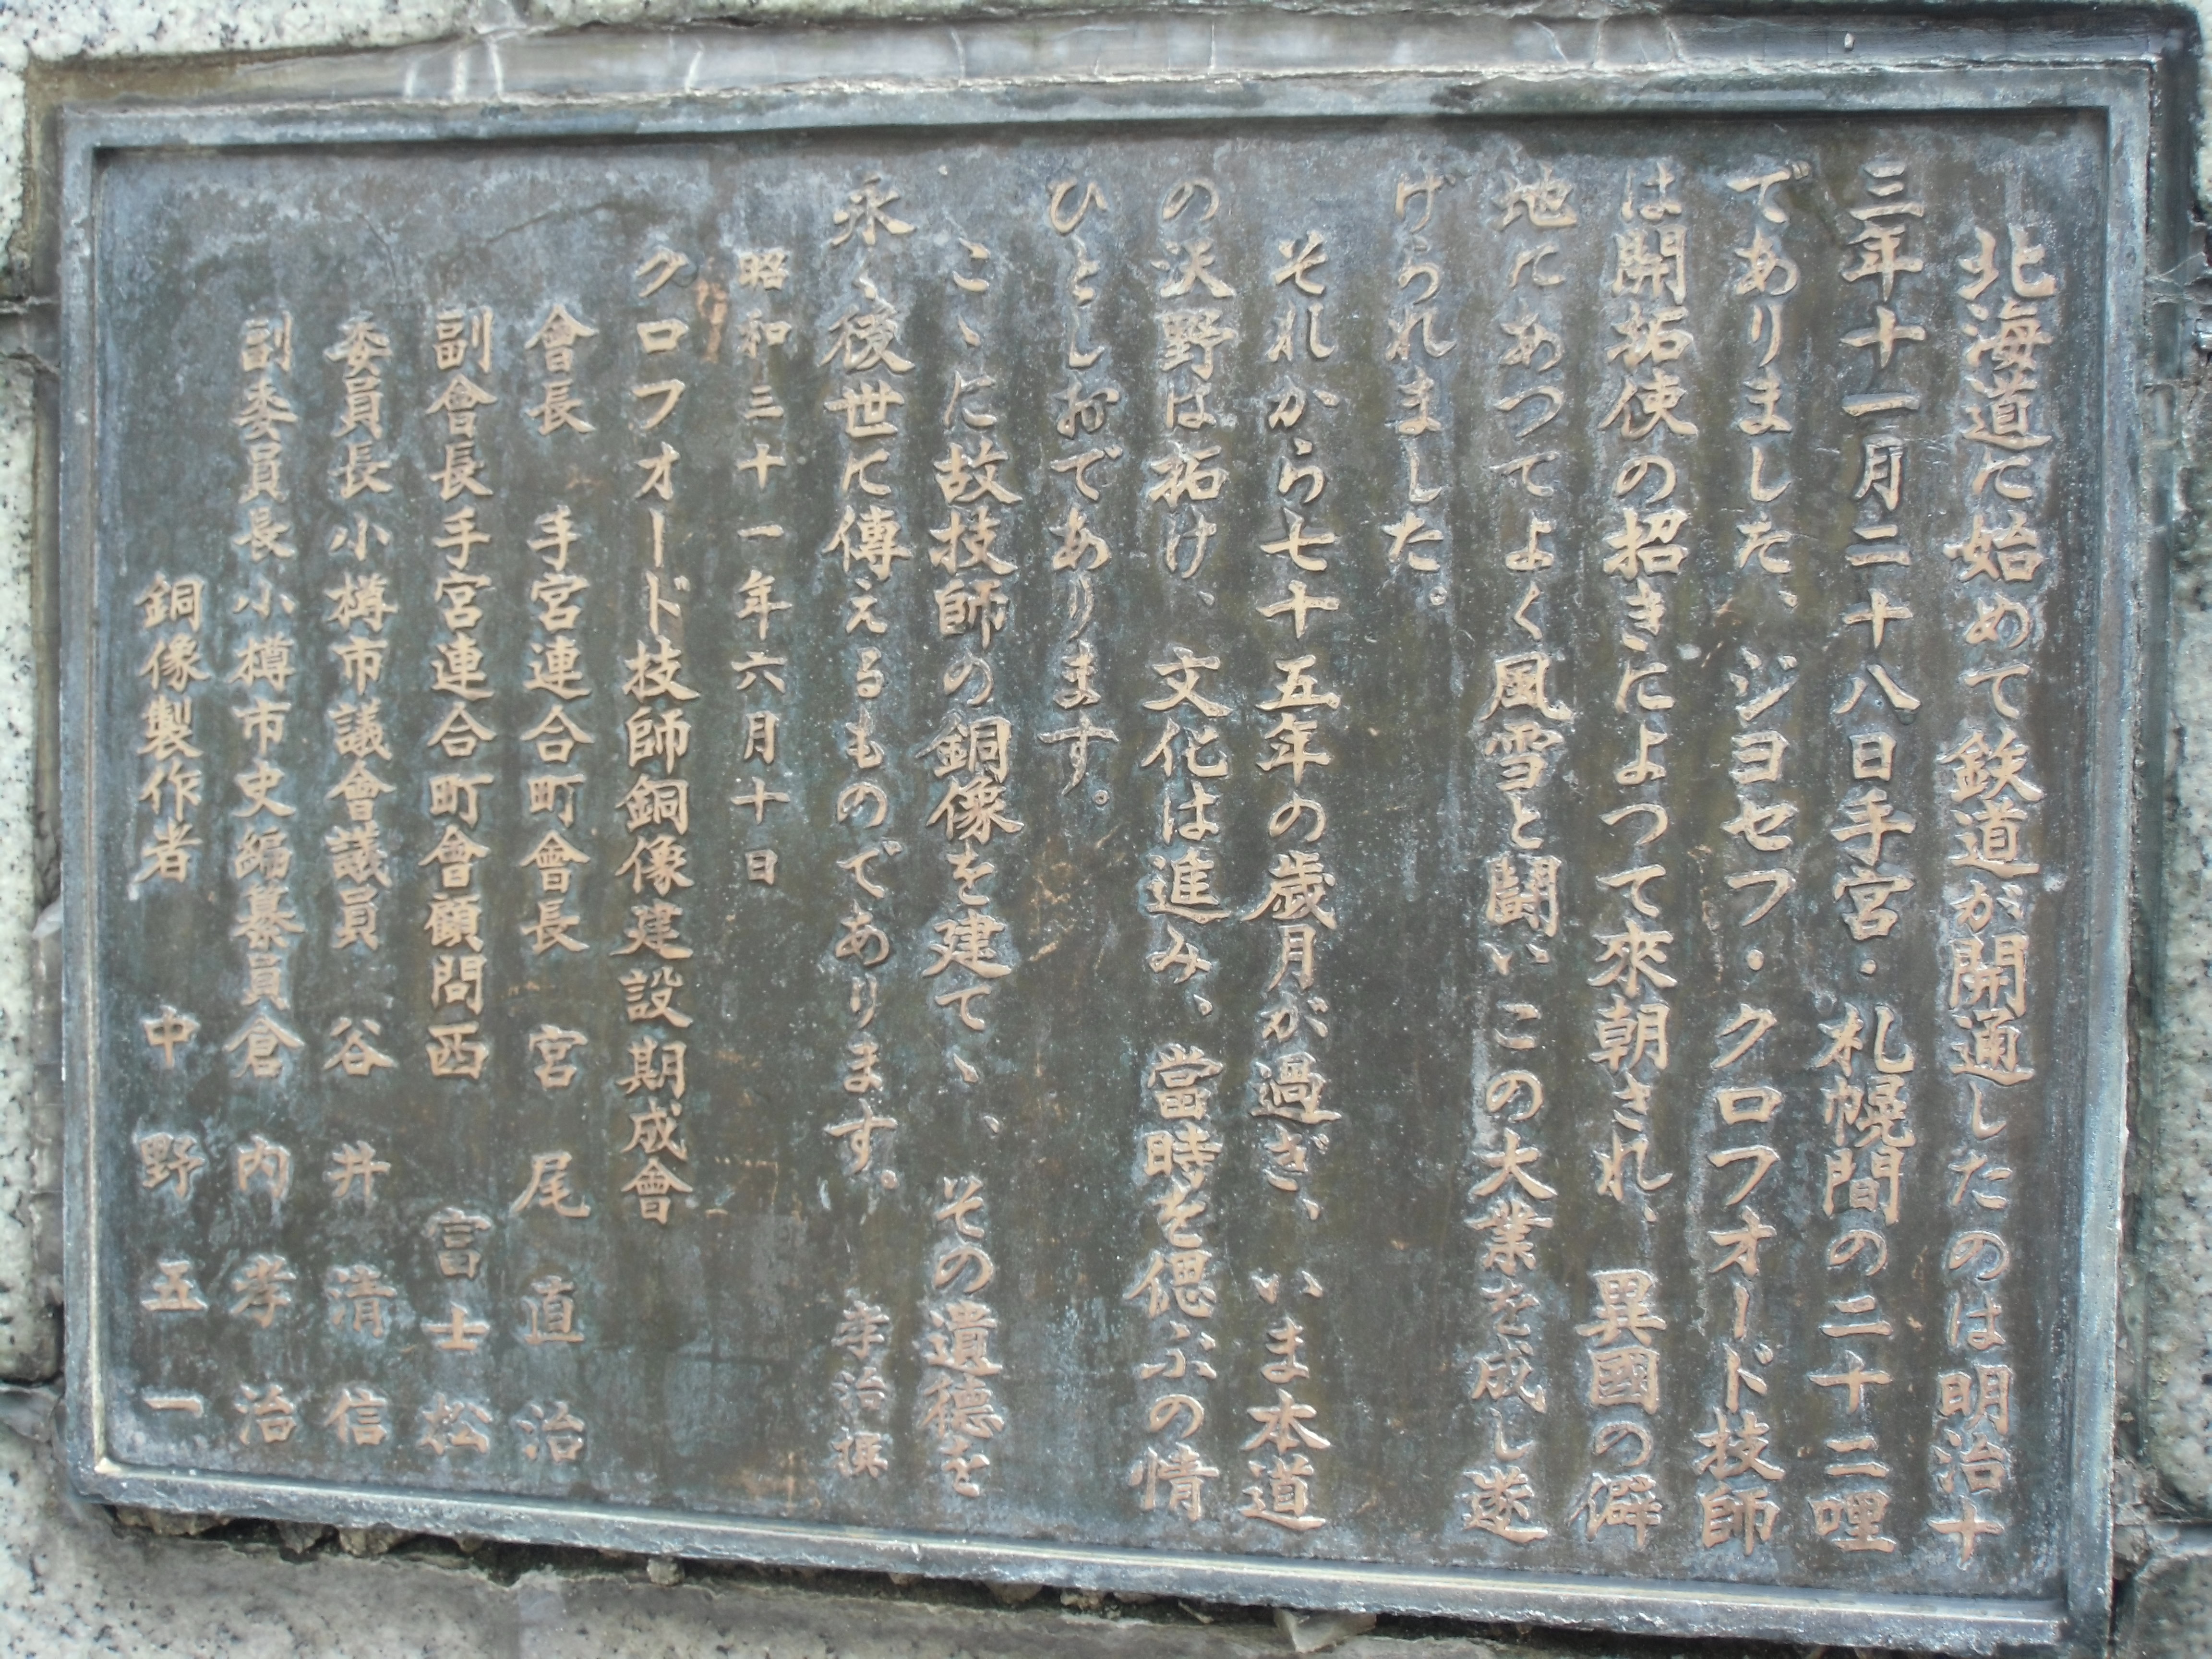 北海道に始めて鉄道が開通したのは明治十
三年十一月二十八日手宮・札幌間の二十二哩
でありました、ジヨセフ・クロフオード技師
は開拓使の招きによつて來朝され、異國の僻
地にあつてよく風雪と闘いこの大業を成し遂
げられました。
それから七十五年の歳月が過ぎ、いま本道
の沃野は拓け、文化は進み、當時を偲ぶの情
ひとしおであります。
こゝに故技師の銅像を建てゝ、その遺徳を
永く後世に傳えるものであります。 孝治撰
昭和三十一年六月十日
クロフオード技師銅像建設期成會
會長 手宮連合町會長 宮尾直治
副會長手宮連合町會顧問西 富士松
委員長小樽市議會議員 谷井清信
副委員長小樽市史編纂員倉内孝治
銅像製作者 中野五一